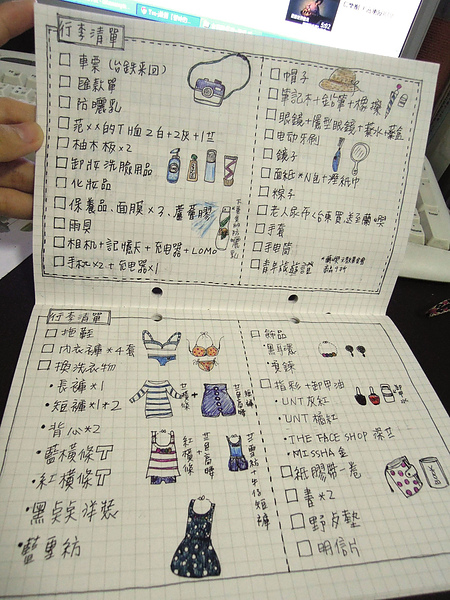 行李清單
□ 車票(台鐵來回)
□ 匯款單
□ 防曬乳
□ 范××的T恤2白+2灰+1藍
□ 柚木板×2
□ 卸妝洗臉用品
□ 化妝品
□ 保養品.面膜×3.蘆薈膠
□ 雨具
□ 相机+記憶卡+充电器+LOMO
□ 手机×2+充电器×1
□ 帽子
□ 筆記本+鉛筆+橡擦
□ 眼鏡+隱型眼鏡+藥水+藥盒
□ 电动牙刷
□ 鏡子
□ 面紙×N包+溼紙巾
□ 粽子
□ 手套
□ 手电筒
□ 青年旅遊證
行李清單
□ 拖鞋
□ 內衣褲×4套
□ 換洗衣物
•長褲×1
•短褲×1+2
•背心×2
•藍橫條T
•紅橫條T
•黑点点洋裝
•藍雪紡
紅橫條
□ 飾品
•黑耳環
□ 指彩+卸甲油
•UNT灰紅
•UNT橘紅
•THE FACE SHOP 深藍
•MISSHA 金
□ 紙膠帶一卷
□ 書×2
□ 野餐墊
□ 明信片